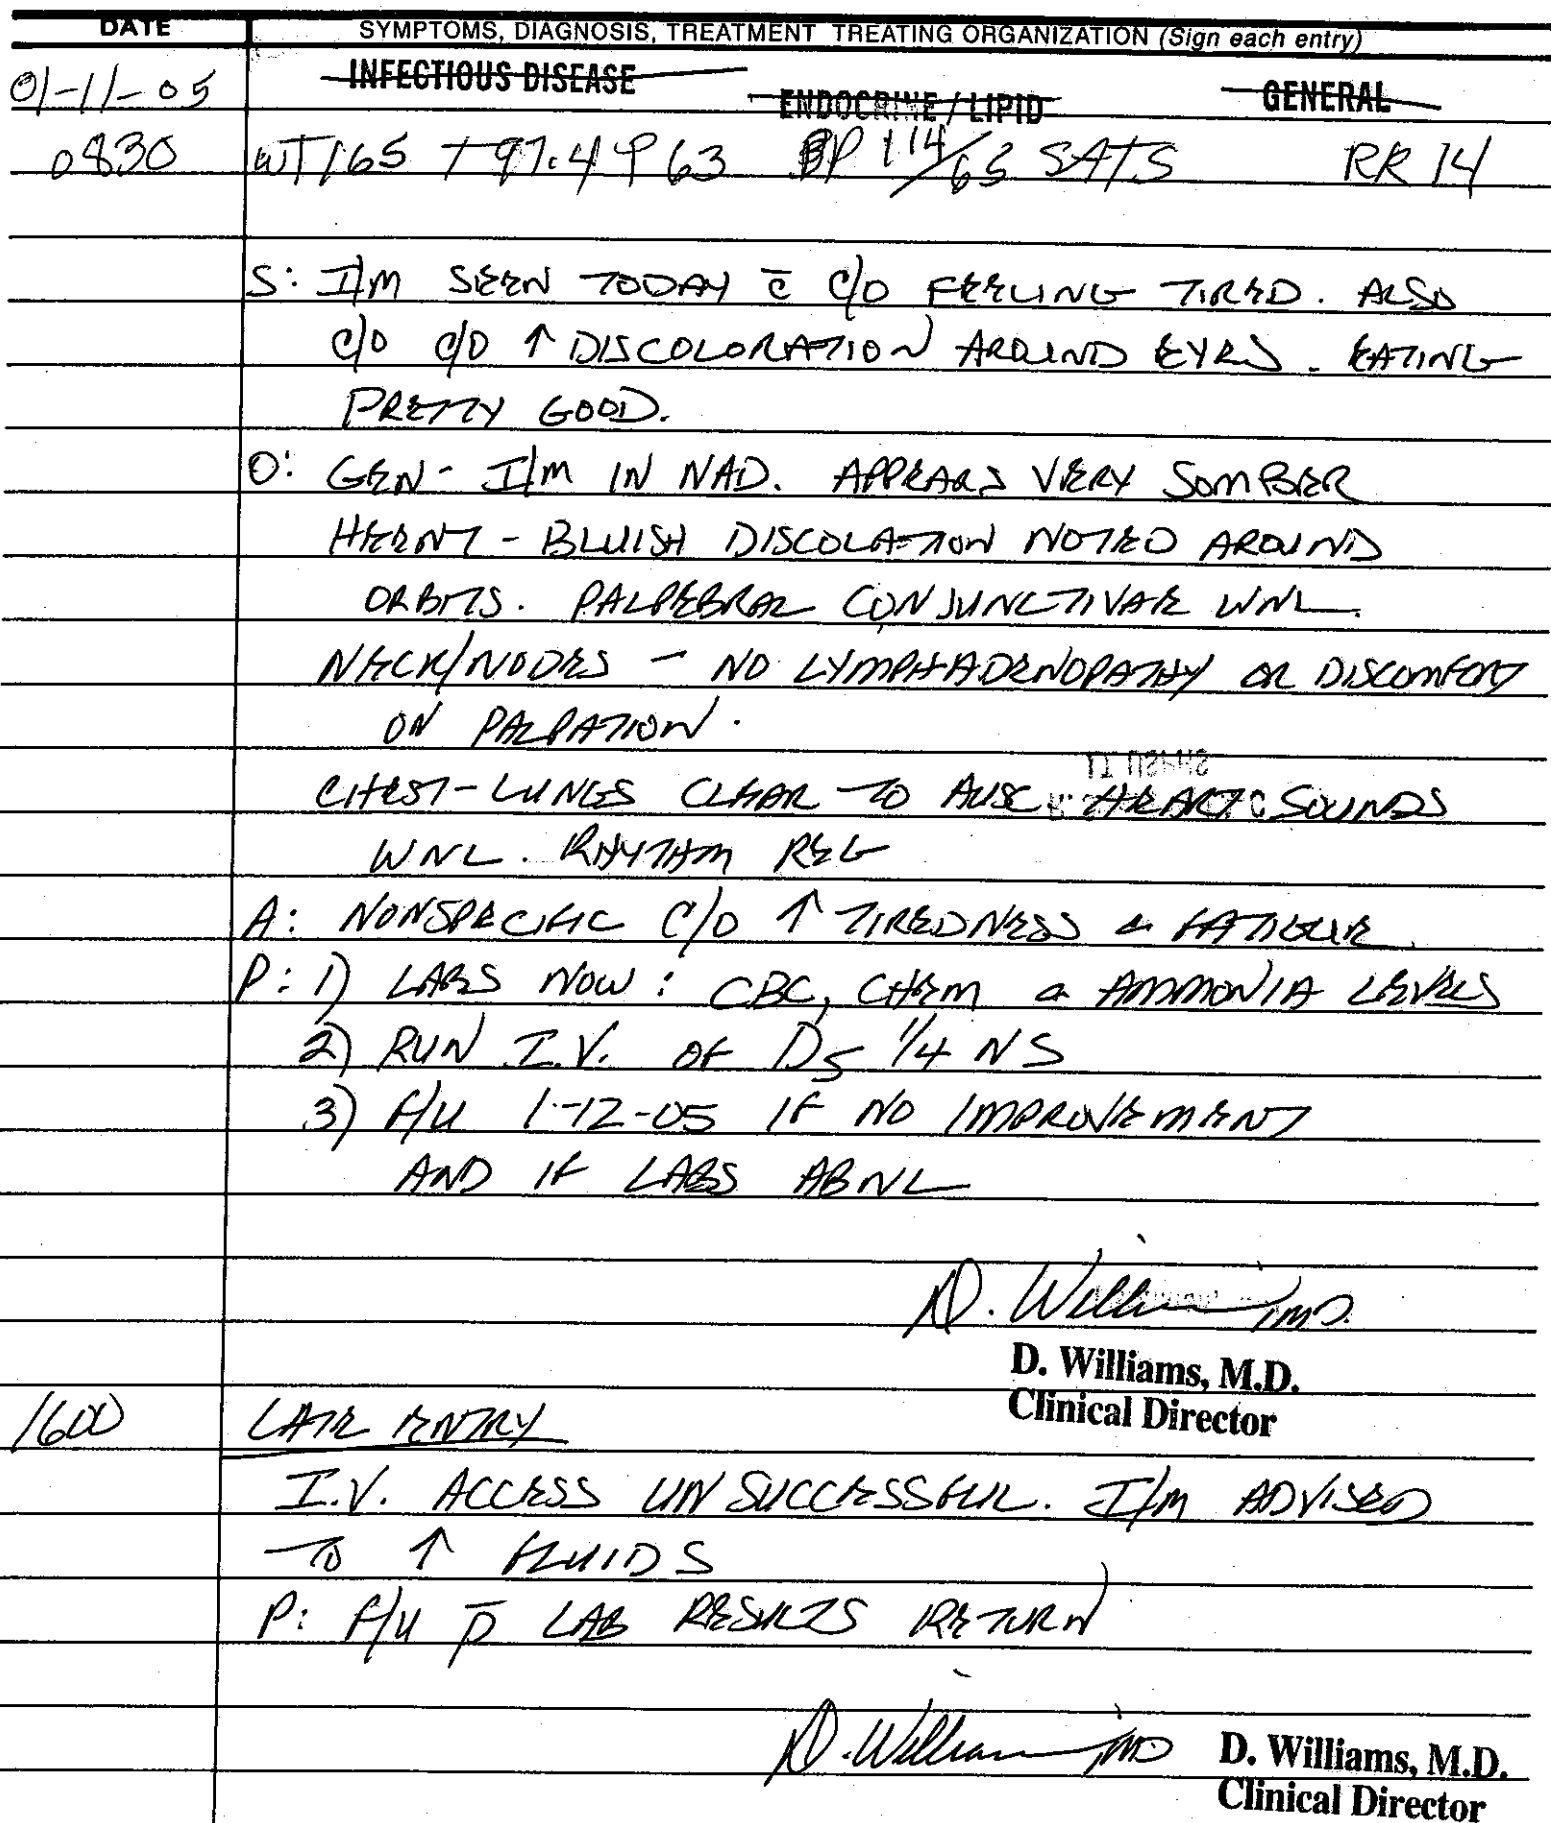 DATE SYMPTOMS, DIAGNOSIS, TREATMENT TREATING ORGANIZATION (Sign each entry)
01-11-05 INFECTIOUS DISEASE ENDOCRINE / LIPID GENERAL
0830 WT 165 T 97.4 P 63 BP 114/63 SATS RR 14
S: I/M SEEN TODAY c̄ c/o FEELING TIRED. ALSO
c/o c/o ↑ DISCOLORATION AROUND EYES. EATING
PRETTY GOOD.
O: GEN - I/M IN NAD. APPEARS VERY SOMBER
HEENT - BLUISH DISCOLATION NOTED AROUND
ORBITS. PALPEBRAL CONJUNCTIVAE WNL.
NECK/NODES - NO LYMPHADENOPATHY OR DISCOMFORT
ON PALPATION.
CHEST - LUNGS CLEAR TO AUSC HEART SOUNDS
WNL. RHYTHM REG
A: NONSPECIFIC C/O ↑ TIREDNESS & FATIGUE.
P: 1) LABS NOW: CBC, CHEM & AMMONIA LEVELS
2) RUN I.V. OF D5 1/4 NS
3) F/U 1-12-05 IF NO IMPROVEMENT
AND IF LABS ABNL
D. Williams MD.
D. Williams, M.D.
Clinical Director
1600 LATE ENTRY
I.V. ACCESS UNSUCCESSFUL. I/M ADVISED
TO ↑ FLUIDS
P: F/U p̄ LAB RESULTS RETURN
D. Williams MD D. Williams, M.D.
Clinical Director